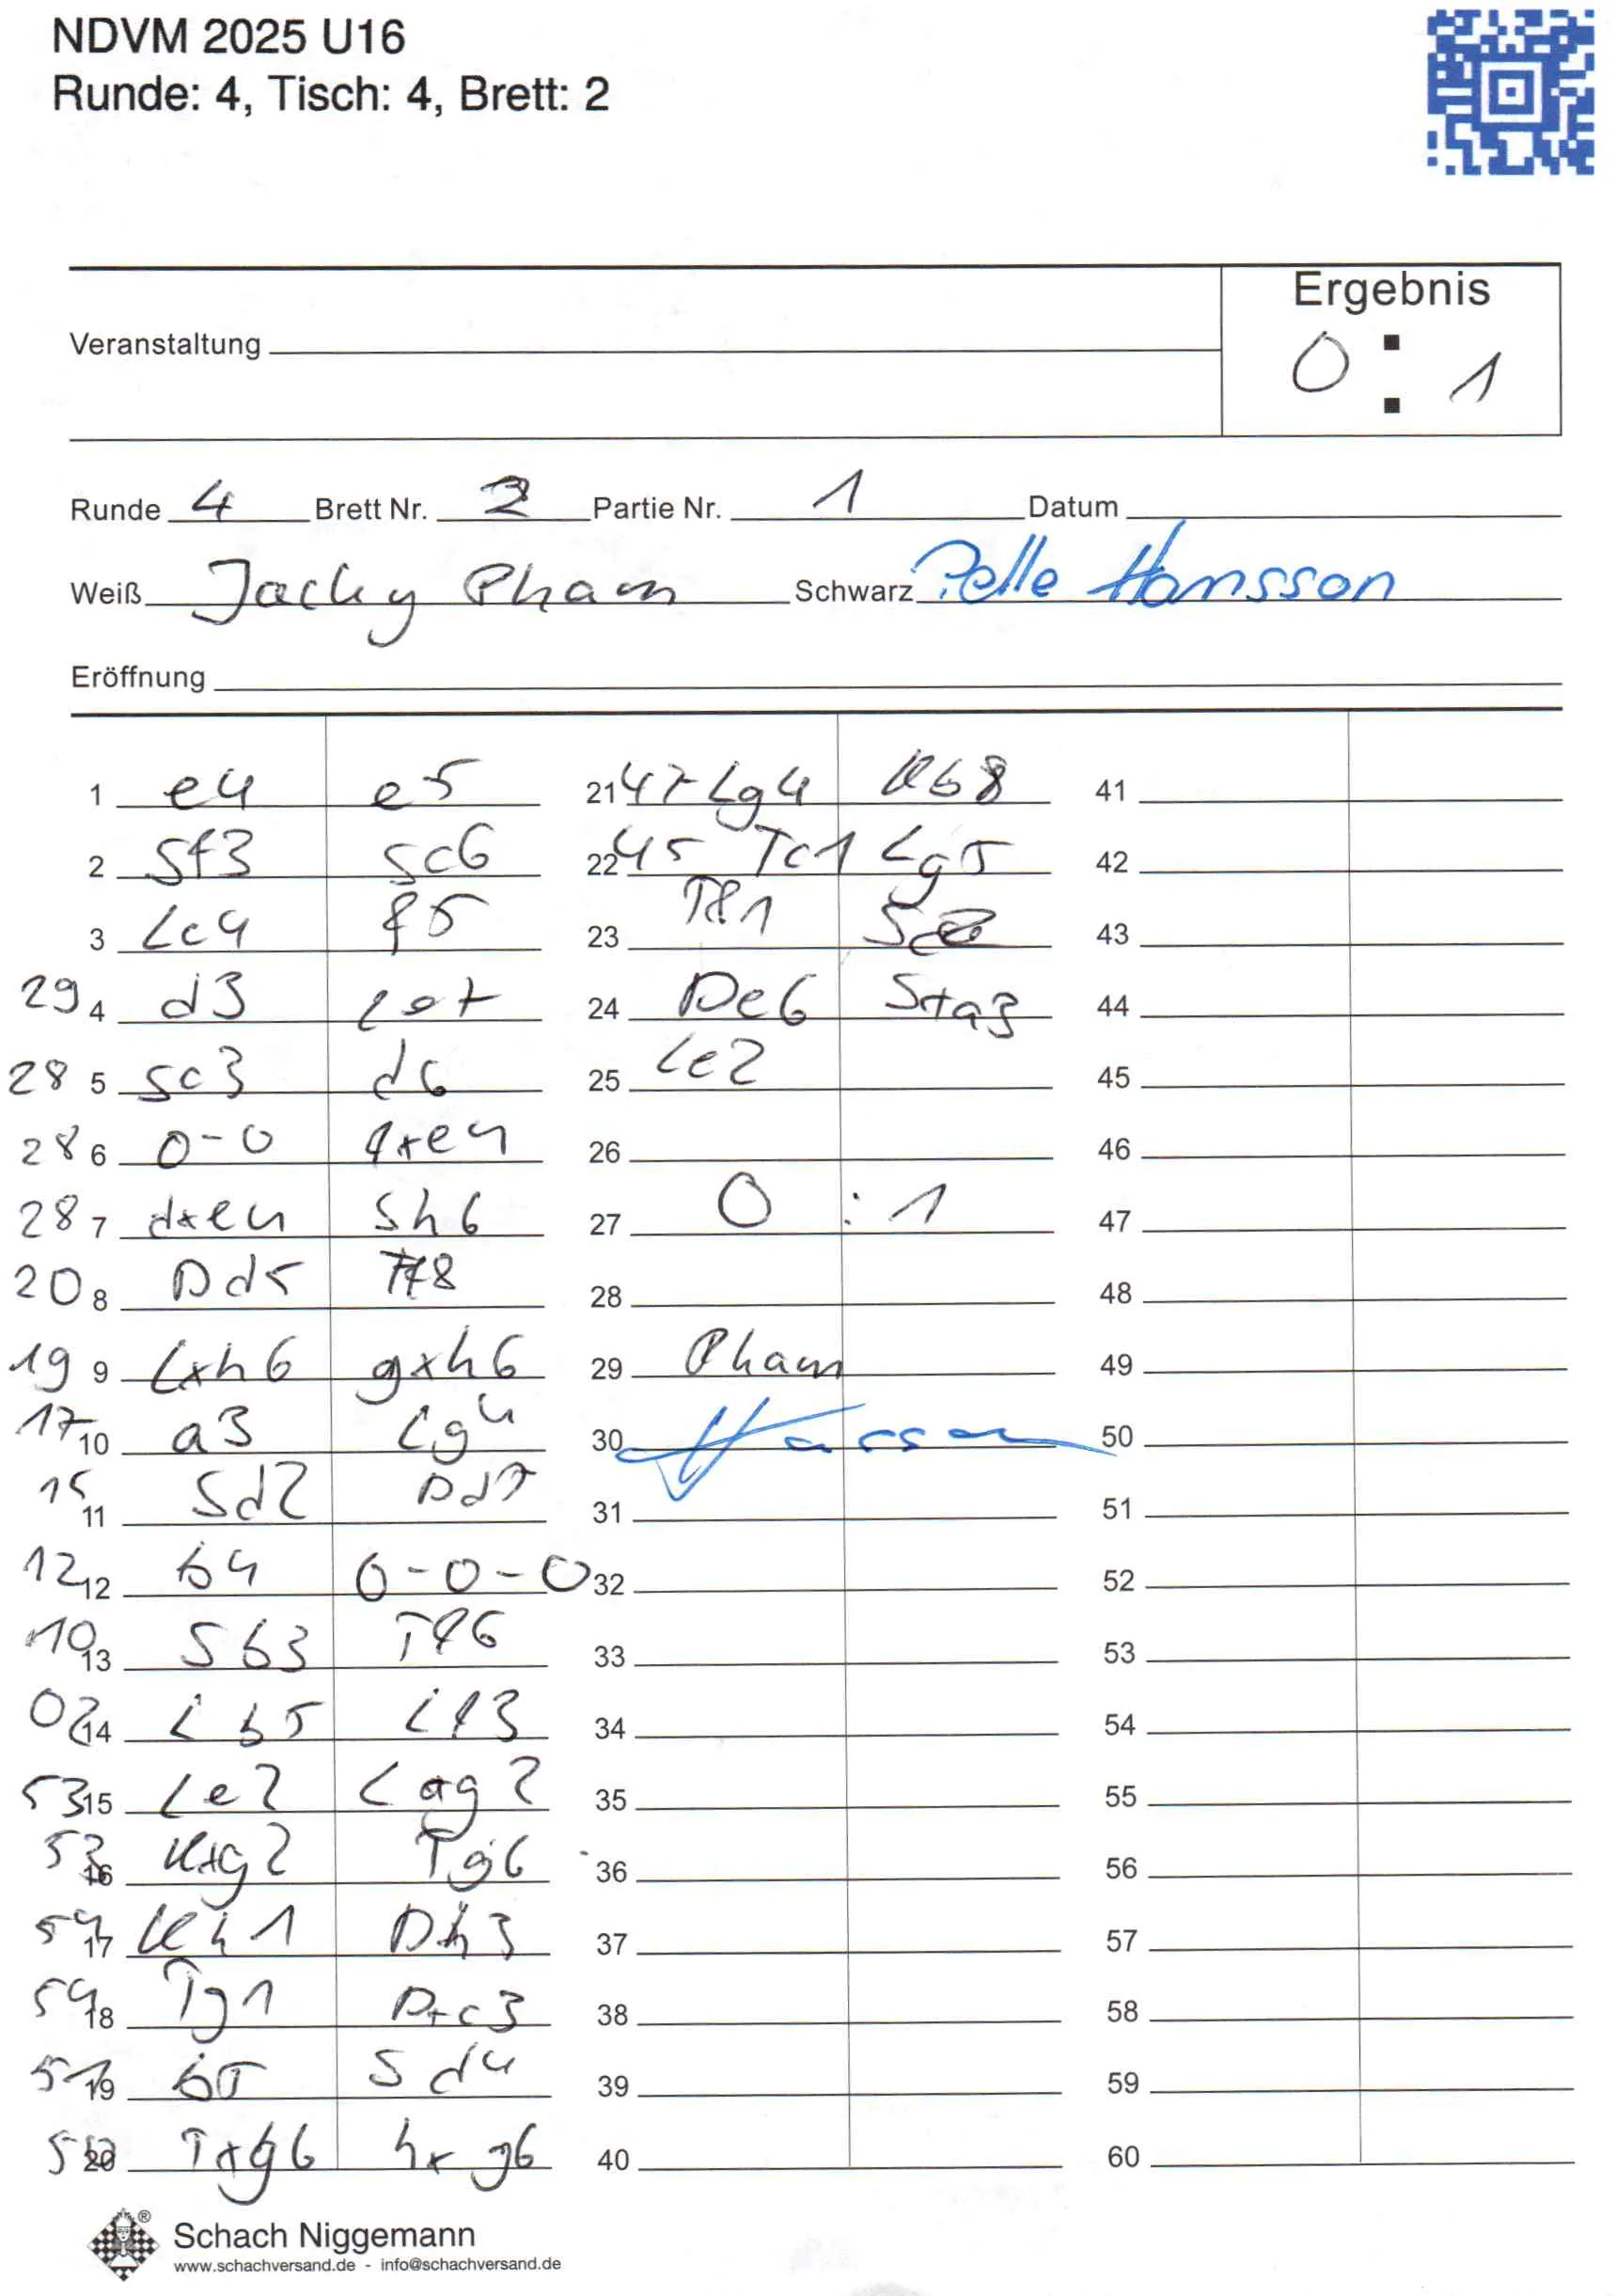 NDVM 2025 U16
Runde: 4, Tisch: 4, Brett: 2
Ergebnis
0 : 1
Veranstaltung
Runde 4 Brett Nr. 2 Partie Nr. 1 Datum
Weiß Jacky Pham Schwarz Pelle Hansson
Eröffnung
1 e4 e5
2 Sf3 Sc6
3 Lc4 f5
29 4 d3 Le7
28 5 Sc3 d6
28 6 0-0 fxe4
28 7 dxe4 Sh6
20 8 Dd5 Tf8
19 9 Lxh6 gxh6
17 10 a3 Lg4
15 11 Sd2 Dd7
12 12 b4 0-0-0
10 13 Sb3 Tf6
02 14 Lb5 Lf3
53 15 Le2 Lxg2
53 16 Kxg2 Tg6
54 17 Kh1 Dh3
54 18 Tg1 Dxc3
51 19 b5 Sd4
20 Txg6 hxg6
21 47 Lg4 Kb8
22 45 Tc1 Lg5
23 Tf1
24 De6 Sxa3
25 Le2
26
27 0 : 1
28
29 Pham
30 Hansson
31
32
33
34
35
36
37
38
39
40
41
42
43
44
45
46
47
48
49
50
51
52
53
54
55
56
57
58
59
60
Schach Niggemann
www.schachversand.de - info@schachversand.de